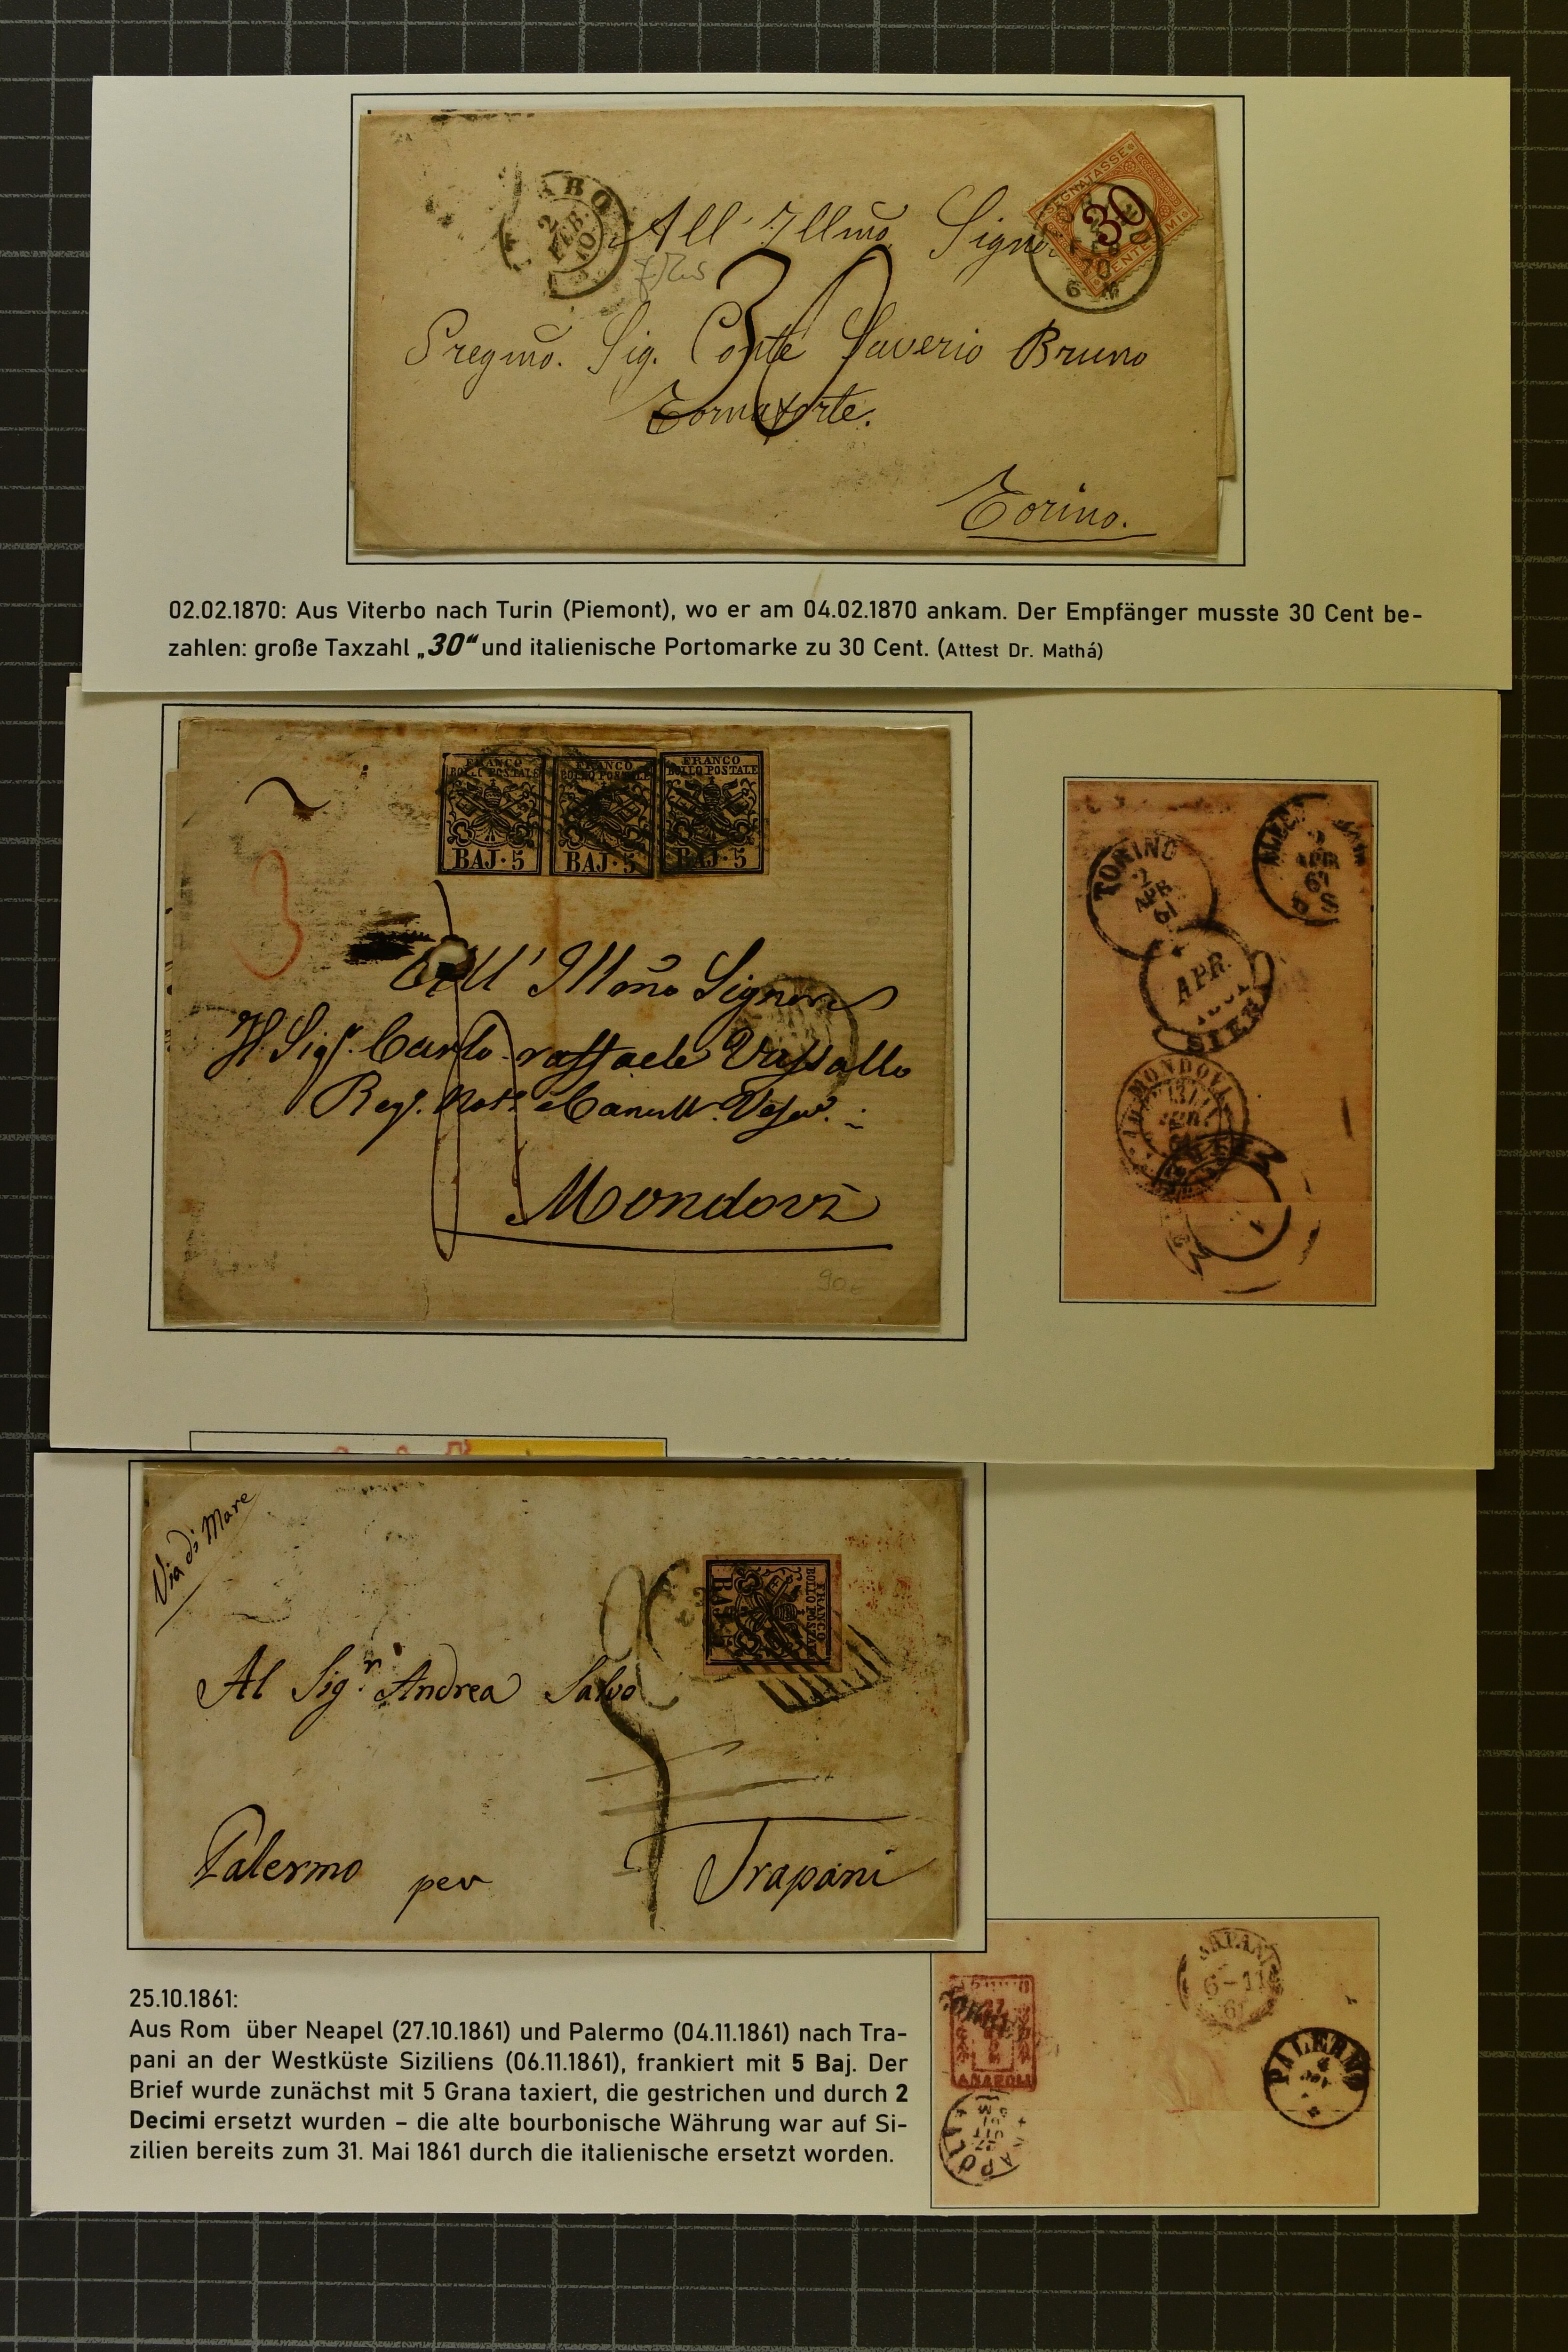 2
FEB.
70
SEGNATASSE
30
CENTESIMI
70
6 M
All' Illmo. Signor
30
Pregmo. Sig. Conte Saverio Bruno
Tornaforte.
Torino.
02.02.1870: Aus Viterbo nach Turin (Piemont), wo er am 04.02.1870 ankam. Der Empfänger musste 30 Cent be-
zahlen: große Taxzahl „30“ und italienische Portomarke zu 30 Cent. (Attest Dr. Mathá)
FRANCO FRANCO FRANCO
BOLLO POSTALE BOLLO POSTALE BOLLO POSTALE
BAJ·5 BAJ·5 BAJ·5
3
All' Illmo Signore
Il Sigr. Carlo raffaele Vassallo
Mondovì
90
TORINO
2
APR
61
APR
61
5 S
APR.
MONDOVI
Via di Mare
FRANCO
BOLLO POSTALE
BAJ
Al Sigr. Andrea Salvo
5
Palermo per Trapani
25.10.1861:
Aus Rom über Neapel (27.10.1861) und Palermo (04.11.1861) nach Tra-
pani an der Westküste Siziliens (06.11.1861), frankiert mit 5 Baj. Der
Brief wurde zunächst mit 5 Grana taxiert, die gestrichen und durch 2
Decimi ersetzt wurden – die alte bourbonische Währung war auf Si-
zilien bereits zum 31. Mai 1861 durch die italienische ersetzt worden.
6-11
61
PALERMO
NAPOLI